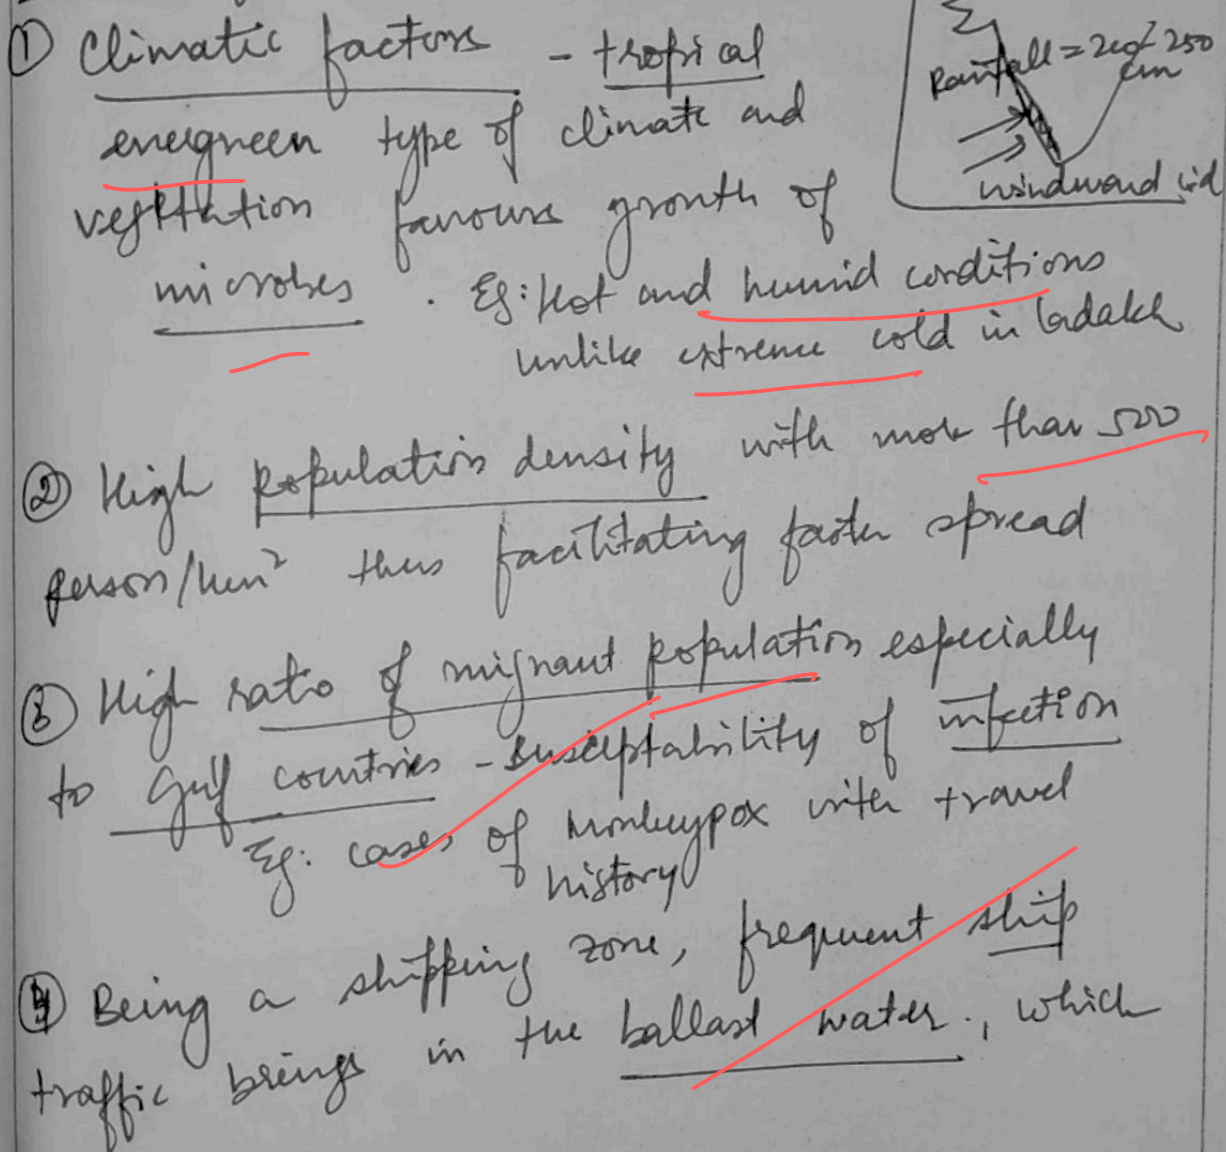 ① Climatic factors - tropical
evergreen type of climate and
vegetation favours growth of
microbes . Eg: Hot and humid conditions
unlike extreme cold in ladakh
Rainfall = 200-250
cm
windward sid
② High population density with more than 500
person/km² thus facilitating faster spread
③ High ratio of migrant population especially
to Gulf countries - susceptability of infection
Eg: cases of Monkeypox with travel
history
④ Being a shipping zone, frequent ship
traffic brings in the ballast water., which